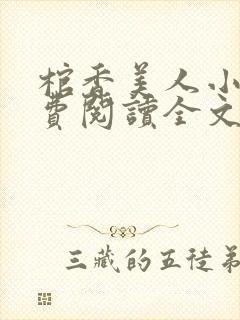 棺香美人小
費閱讀全文
三藏的五徒弟